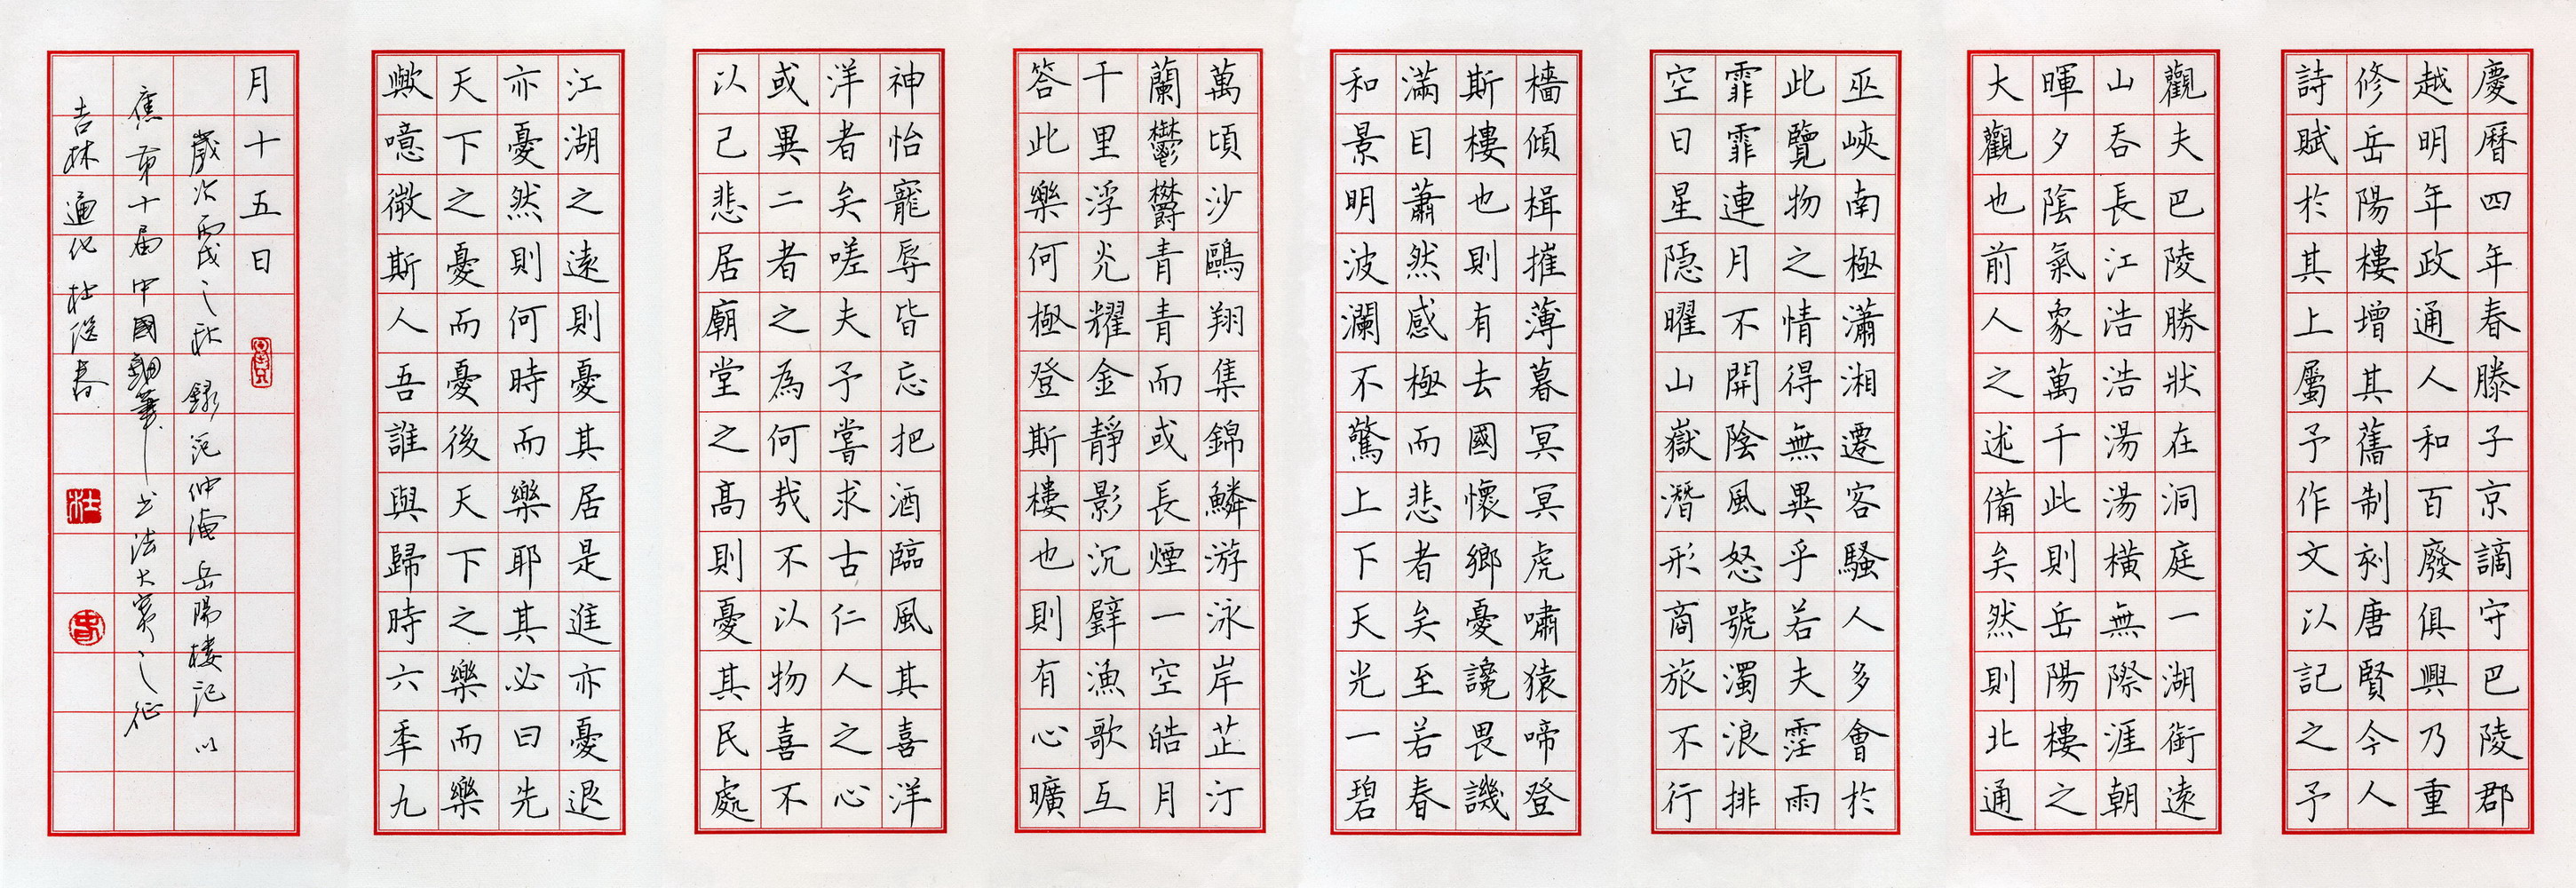 慶曆四年春滕子京謫守巴陵郡
越明年政通人和百廢俱興乃重
修岳陽樓增其舊制刻唐賢今人
詩賦於其上屬予作文以記之予
觀夫巴陵勝狀在洞庭一湖銜遠
山吞長江浩浩湯湯橫無際涯朝
暉夕陰氣象萬千此則岳陽樓之
大觀也前人之述備矣然則北通
巫峽南極瀟湘遷客騷人多會於
此覽物之情得無異乎若夫霪雨
霏霏連月不開陰風怒號濁浪排
空日星隱曜山嶽潛形商旅不行
檣傾楫摧薄暮冥冥虎嘯猿啼登
斯樓也則有去國懷鄉憂讒畏譏
滿目蕭然感極而悲者矣至若春
和景明波瀾不驚上下天光一碧
萬頃沙鷗翔集錦鱗游泳岸芷汀
蘭鬱欝青青而或長煙一空皓月
千里浮光耀金靜影沉璧漁歌互
答此樂何極登斯樓也則有心曠
神怡寵辱皆忘把酒臨風其喜洋
洋者矣嗟夫予嘗求古仁人之心
或異二者之為何哉不以物喜不
以己悲居廟堂之高則憂其民處
江湖之遠則憂其居是進亦憂退
亦憂然則何時而樂耶其必曰先
天下之憂而憂後天下之樂而樂
歟噫微斯人吾誰與歸時六年九
月十五日
歲次丙戌之秋錄范仲淹岳陽樓記以
應第十屆中國鋼筆書法大賽之征
吉林通化杜春
杜
春